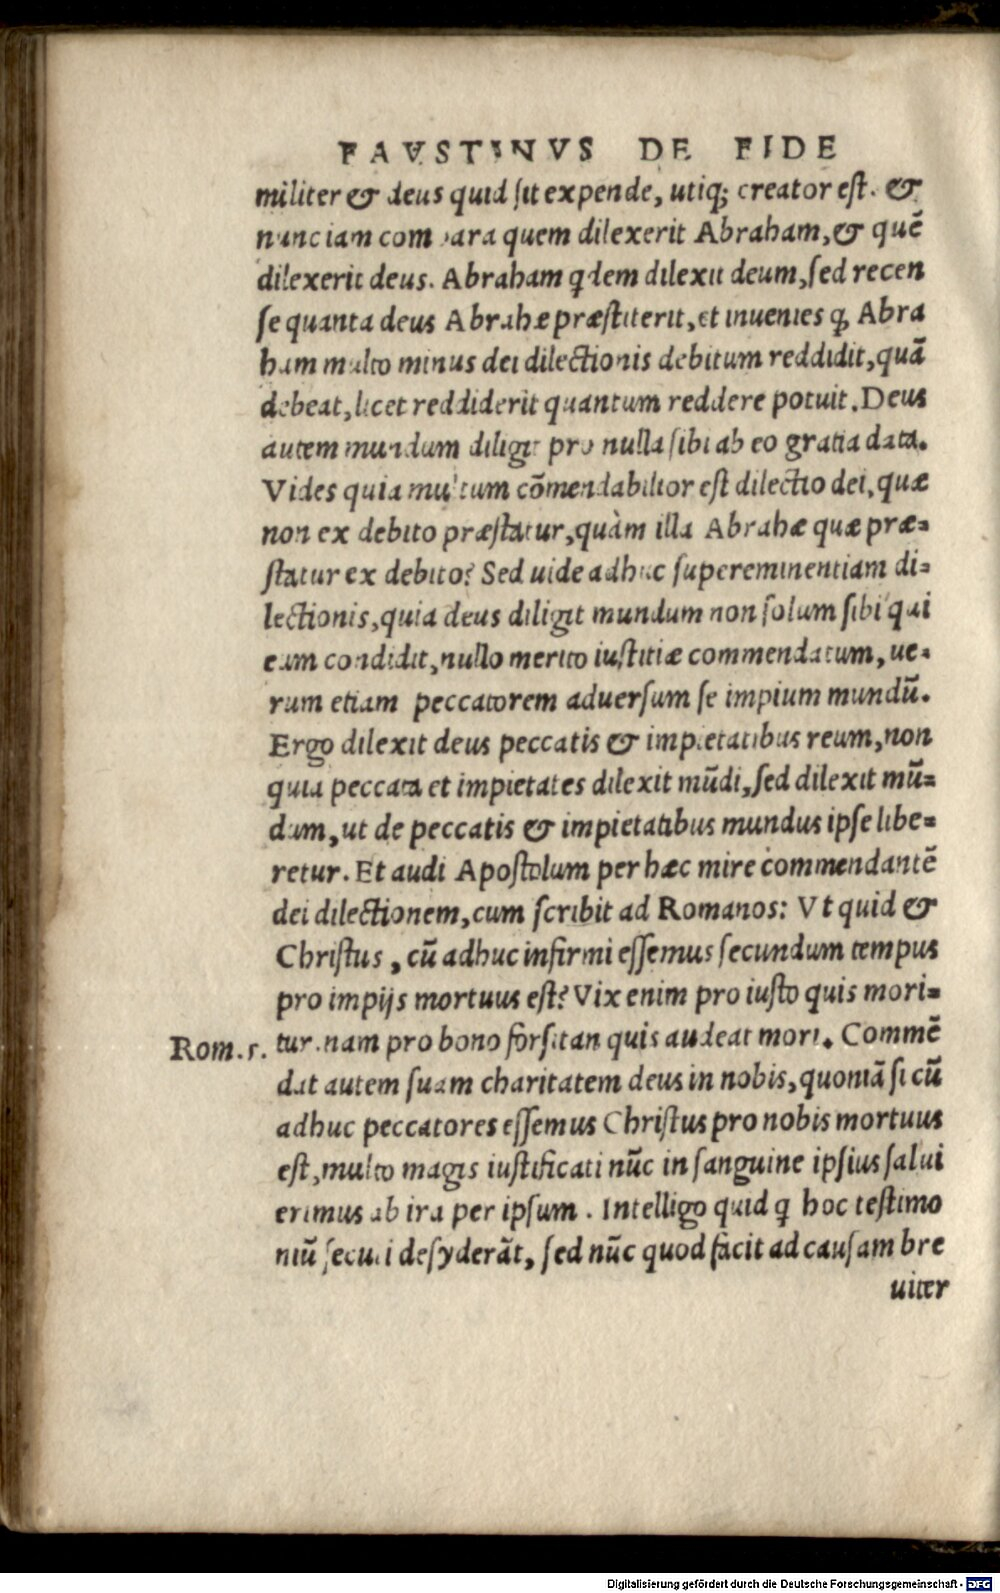 FAVSTINVS DE FIDE
militer & deus quid sit expende, utiq; creator est. &
nunc iam compara quem dilexerit Abraham, & quē
dilexerit deus. Abraham qdem dilexit deum, sed recen
se quanta deus Abrahæ præstiterit, et inuenies q Abra
ham multo minus dei dilectionis debitum reddidit, quā
debeat, licet reddiderit quantum reddere potuit. Deus
autem mundum diligit pro nulla sibi ab eo gratia data.
Vides quia multum cōmendabilior est dilectio dei, quæ
non ex debito præstatur, quàm illa Abrahæ quæ præ=
statur ex debito? Sed uide adhuc supereminentiam di=
lectionis, quia deus diligit mundum non solum sibi qui
eum condidit, nullo merito iustitiæ commendatum, ue=
rum etiam peccatorem aduersum se impium mundū.
Ergo dilexit deus peccatis & impietatibus reum, non
quia peccata et impietates dilexit mūdi, sed dilexit mū=
dum, ut de peccatis & impietatibus mundus ipse libe=
retur. Et audi Apostolum per hæc mire commendantē
dei dilectionem, cum scribit ad Romanos: Vt quid &
Christus, cū adhuc infirmi essemus secundum tempus
pro impijs mortuus est? Vix enim pro iusto quis mori=
Rom. 5. tur. nam pro bono forsitan quis audeat mori. Commē
dat autem suam charitatem deus in nobis, quoniā si cū
adhuc peccatores essemus Christus pro nobis mortuus
est, multo magis iustificati nūc in sanguine ipsius salui
erimus ab ira per ipsum. Intelligo quid q hoc testimo
niū secuti desyderāt, sed nūc quod facit ad causam bre
uiter
Digitalisierung gefördert durch die Deutsche Forschungsgemeinschaft - DFG